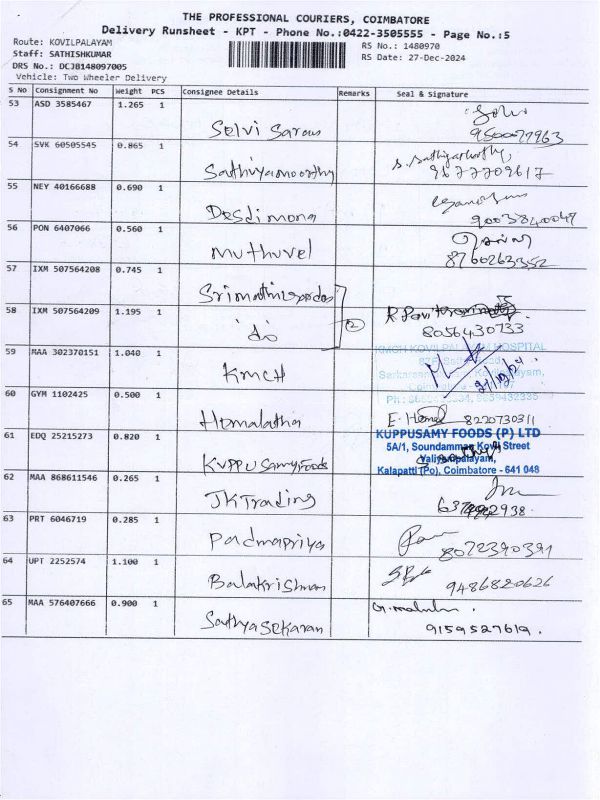 THE PROFESSIONAL COURIERS, COIMBATORE
Delivery Runsheet - KPT - Phone No.:0422-3505555 - Page No.:5
Route: KOVILPALAYAM
Staff: SATHISHKUMAR
DRS No.: DCJB148097005
Vehicle: Two Wheeler Delivery
RS No.: 1480970
RS Date: 27-Dec-2024
S No Consignment No Weight PCS Consignee Details Remarks Seal & Signature
53 ASD 3585467 1.265 1
Selvi Saravs
9500077963
54 SVK 60505545 0.865 1
Sathiyamoorthy
S. Sathiyamoorthy,
9677709617
55 NEY 40166688 0.690 1
Desdimona
9003840049
56 PON 6407066 0.560 1
Muthuvel
8760263352
57 IXM 507564208 0.745 1
58 IXM 507564209 1.195 1
do
2
8056430733
59 MAA 302370151 1.040 1
KMCH
KMCH KOVILPALAYAM HOSPITAL
60 GYM 1102425 0.500 1
Hemalatha
E. Hemal 8220730311
61 EDQ 25215273 0.820 1
Kuppusamy Foods
KUPPUSAMY FOODS (P) LTD
5A/1, Soundamman Kovil Street
Yaliyampalayam,
Kalapatti (Po), Coimbatore - 641 048
62 MAA 868611546 0.265 1
JK Trading
63 PRT 6046719 0.285 1
Padmapriya
8072390391
64 UPT 2252574 1.100 1
Balakrishnan
9486820626
65 MAA 576407666 0.900 1
Sathyasekaran
9159527619.